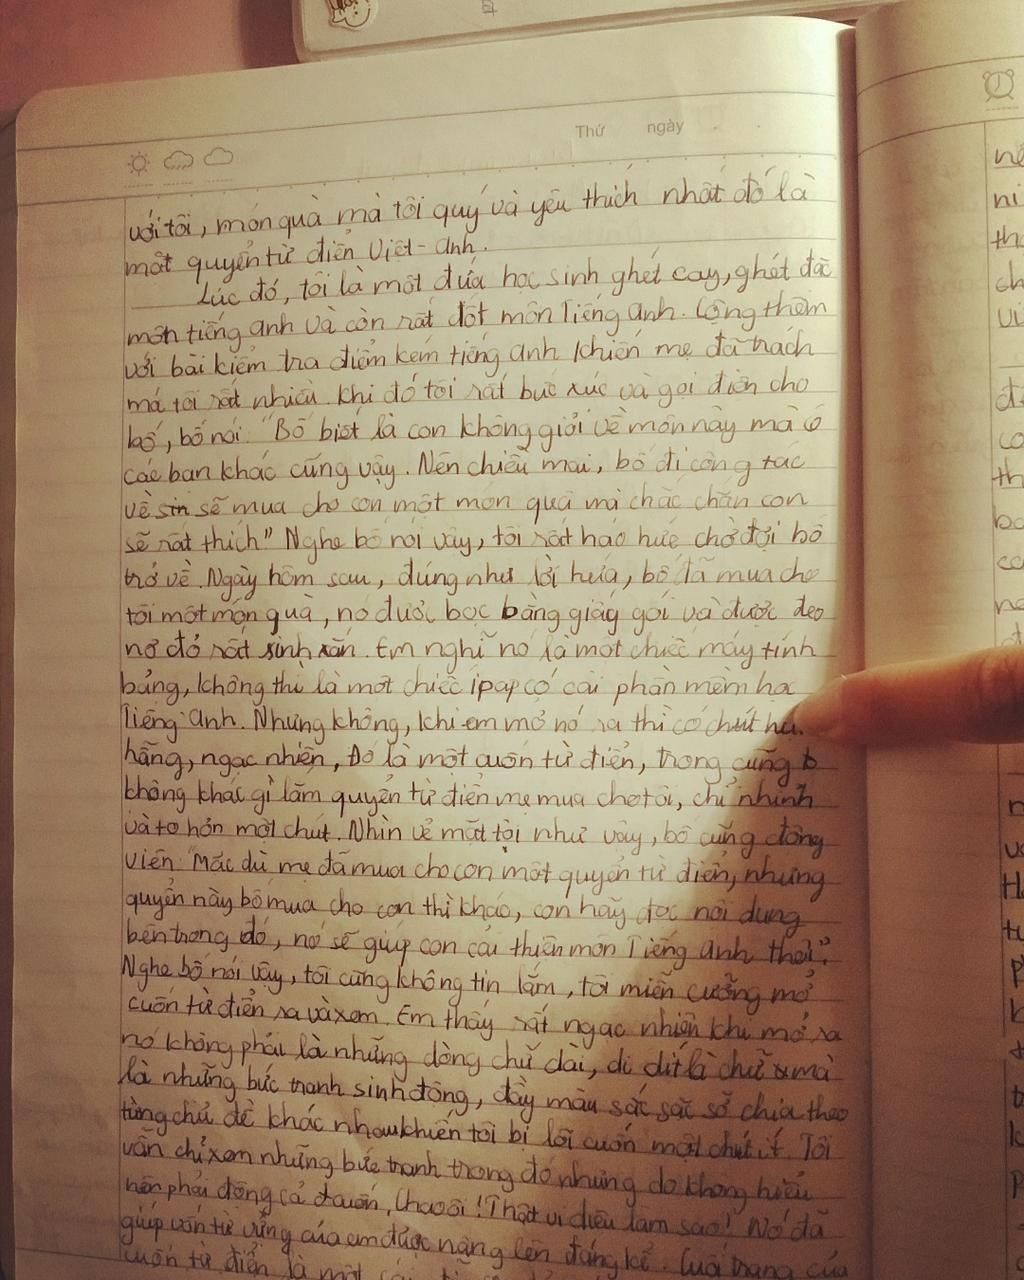 Thứ ngày
với tôi, món quà mà tôi quý và yêu thích nhất đó là
một quyển từ điển Việt - Anh.
Lúc đó, tôi là một đứa học sinh ghét cay, ghét đắc
môn tiếng anh và còn rất dốt môn Tiếng Anh. Cộng thêm
với bài kiểm tra điểm kém tiếng anh khiến mẹ đã trách
má tôi rất nhiều. Khi đó tôi rất bức xúc và gọi điện cho
bố, bố nói: "Bố biết là con không giỏi về môn này mà
các bạn khác cũng vậy. Nên chiều mai, bố đi công tác
về sẽ mua cho con một món quà mà chắc chắn con
sẽ rất thích" Nghe bố nói vậy, tôi rất háo hức chờ đợi bố
trở về. Ngày hôm sau, đúng như lời hứa, bố đã mua cho
tôi một món quà, nó được bọc bằng giấy gói và được đeo
nơ đỏ rất xinh xắn. Em nghĩ nó là một chiếc máy tính
bảng, không thì là một chiếc ipap có cài phần mềm học
Tiếng Anh. Nhưng không, khi em mở nó ra thì có chút
hẫng, ngạc nhiên, Đó là một cuốn từ điển, trong cũng
không khác gì lắm quyển từ điển mẹ mua cho tôi, chỉ nhỉnh
và to hơn một chút. Nhìn vẻ mặt tôi như vậy, bố cũng động
viên: "Mặc dù mẹ đã mua cho con một quyển từ điển, nhưng
quyển này bố mua cho con thì kháo, con hãy đọc nội dung
bên trong đó, nó sẽ giúp con cải thiện môn Tiếng Anh thôi".
Nghe bố nói vậy, tôi cũng không tin lắm, tôi miễn cưỡng mở
cuốn từ điển ra và xem. Em thấy rất ngạc nhiên khi mở ra
nó không phải là những dòng chữ dài, chữ mà
là những bức tranh sinh động, đầy màu sắc sặc sỡ chia theo
từng chủ đề khác nhau khiến tôi bị lôi cuốn một chút ít. Tôi
vẫn chỉ xem những bức tranh trong đó nhưng do không hiểu
nên phải đọc cả cuốn, Chao ôi! Thật vi diệu làm sao! Nó đã
giúp vốn từ vựng của em được nâng lên đáng kể. Cuối trang của
cuốn từ điển là một